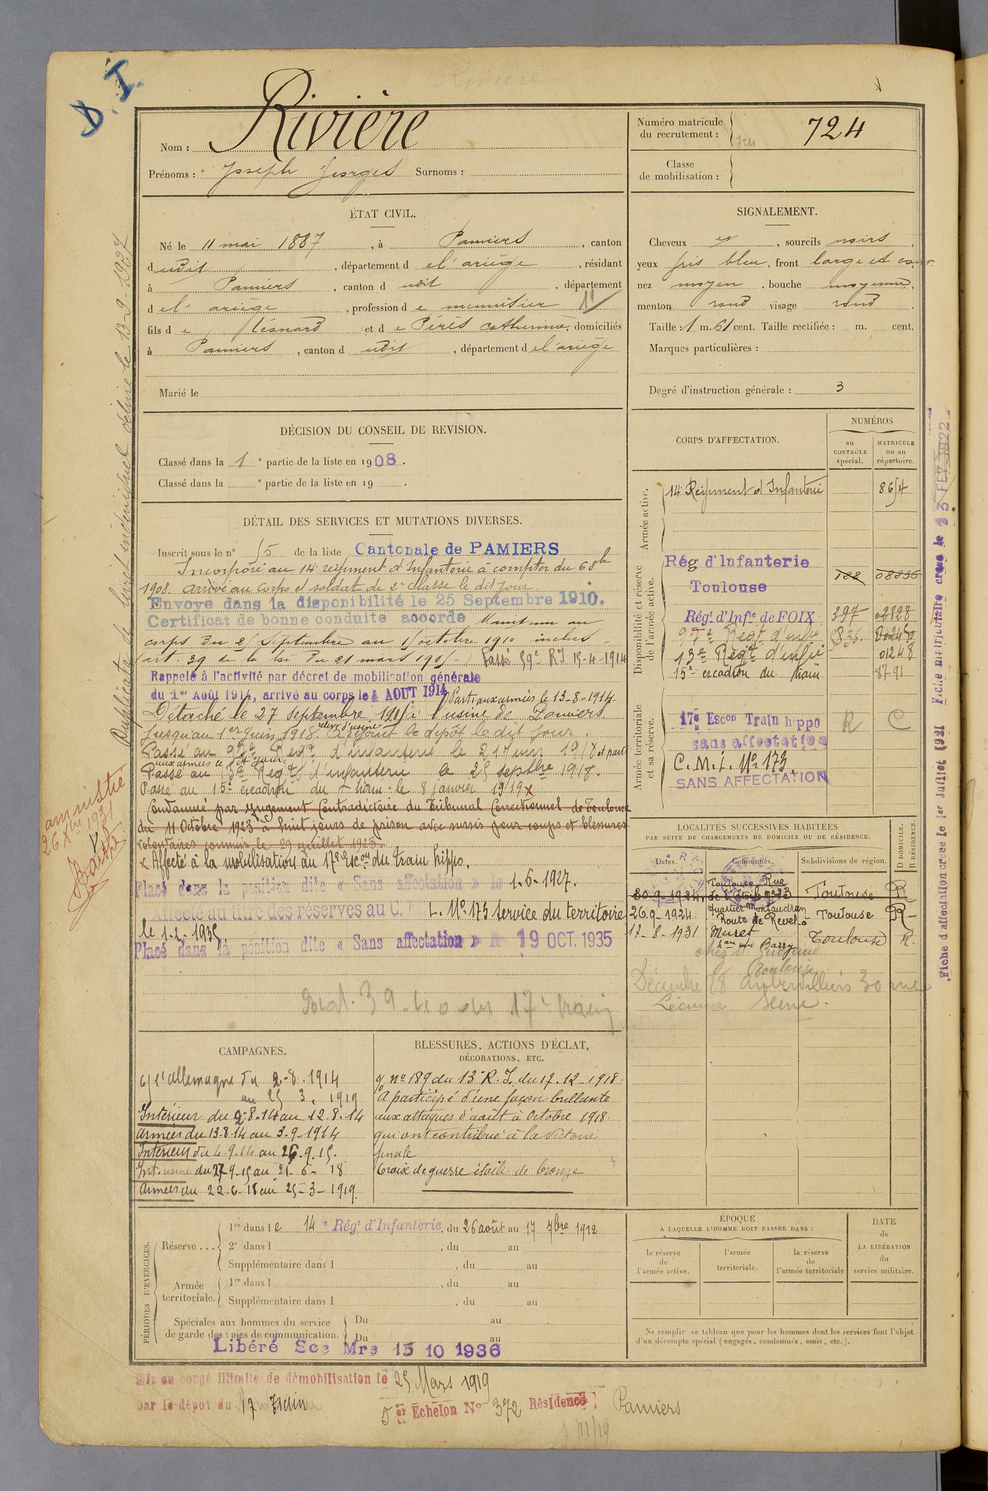 D. I.
Nom : Rivière
Prénoms : Joseph Georges Surnoms :
Numéro matricule du recrutement : 724
Classe de mobilisation :
ÉTAT CIVIL.
Né le 11 mai 1887, à Pamiers, canton
dudit, département de l'ariège, résidant
à Pamiers, canton d udit, département
d el' ariège, profession de menuisier
fils de Léonard et de Péris catherine, domiciliés
à Pamiers, canton d udit, département de l'ariège
Marié le
SIGNALEMENT.
Cheveux et, sourcils noirs,
yeux gris bleu, front large et
nez moyen, bouche moyenne,
menton rond visage rond
Taille : 1 m. 61 cent. Taille rectifiée : m. cent.
Marques particulières :
Degré d'instruction générale : 3
DÉCISION DU CONSEIL DE REVISION.
Classé dans la 1e partie de la liste en 1908.
Classé dans la e partie de la liste en 19 .
DÉTAIL DES SERVICES ET MUTATIONS DIVERSES.
Inscrit sous le n° 15 de la liste Cantonale de PAMIERS
Incorporé au 14 régiment d'Infanterie à compter du 6 8bre
1908. Arrivé au corps et soldat de 2e classe le dit jour
Envoyé dans la disponibilité le 25 Septembre 1910.
Certificat de bonne conduite accordé Maintenu au
corps du 25 septembre au 1 octobre 1910 inclus
art. 39 de la loi du 21 mars 1905. Passé 59e RI 15-4-1914
Rappelé à l'activité par décret de mobilisation générale
du 1er Août 1914, arrivé au corps le AOUT 1914 Parti aux armées le 13-8-1914.
Détaché le 27 septembre 1915 à l'usine de Pamiers.
Jusqu'au 1er juin 1918 a rejoint le dépôt le dit jour.
Passé au 9e Regt d'infanterie le 21 juin 1918 et parti
aux armées ce dit jour
Passé au 13e Regt d'infanterie le 25 septbre 1918.
Passé au 15e escadron du train le 8 janvier 1919 x
Condamné par jugement Contradictoire du Tribunal Correctionnel de Toulouse
du 11 Octobre 1923 à huit jours de prison avec sursis pour coups et blessures
volontaires commis le 29 juillet 1923.
x Affecté à la mobilisation au 17e Escon du train hippo.
Placé dans la position dite « Sans affectation » le 1-6-1927.
Affecté au titre des réserves au C. L. No 173 service du territoire
Placé dans la position dite « Sans affectation » le 19 OCT. 1935
Duplicata de livret individuel délivré le 13-9 1927
amnistie
26 Xbre 1931
CORPS D'AFFECTATION.
NUMÉROS
au CONTRÔLE spécial.
MATRICULE ou au répertoire.
Armée active.
14 Régiment d'Infanterie 8654
Disponibilité et réserve de l'armée active.
Rég d'Infanterie
Toulouse
Rég. d'Infie de FOIX 397
9e Regt d'infie
13e Regt d'infie 01248
15e escadron du train 8791
Armée territoriale et sa réserve.
17e Escon Train hippo R C
sans affectation
C. M. No 173
SANS AFFECTATION
LOCALITÉS SUCCESSIVES HABITÉES
PAR SUITE DE CHANGEMENTS DE DOMICILE OU DE RÉSIDENCE.
Dates. Communes. Subdivisions de région. D DOMICILE. R RÉSIDENCE.
Toulouse Rue
Toulouse R
26.9-1924 Quartier Montaudran
Route de Revel Toulouse R
12-8-1931 Muret Toulouse R.
Fiche d'affectation créée le 1er Juillet 1921
CAMPAGNES.
c/ l'allemagne du 2-8-1914
au 25 3. 1919
Intérieur du 2-8-14 au 12.8.14
Armées du 13-8-14 au 3-9-1914
Intérieur du 4.9.14 au 26.9.15.
Int. usine du 27-9-15 au 21-6-18
Armées du 22.6.18 au 25-3-1919
BLESSURES, ACTIONS D'ÉCLAT,
DÉCORATIONS, ETC.
nº 189 du 13e R.I. du 17-12-1918
A participé d'une façon brillante
aux attaques d'août à Octobre 1918
qui ont contribué à la Victoire
finale
Croix de guerre étoile de bronze
PÉRIODES D'EXERCICES.
Réserve... 1re dans le 14e Rég. d'Infanterie, du 26 août au 17 7bre 1912
2e dans l , du au
Supplémentaire dans l , du au
Armée territoriale. 1re dans l , du au
Supplémentaire dans l , du au
Spéciales aux hommes du service de garde des voies de communication. Du au
Du au
Libéré Sce Mre 15 10 1936
ÉPOQUE
À LAQUELLE L'HOMME DOIT PASSER DANS :
la réserve de l'armée active.
l'armée territoriale.
la réserve de l'armée territoriale
DATE de LA LIBÉRATION du service militaire.
Ne remplir ce tableau que pour les hommes dont les services font l'objet
d'un décompte spécial (engagés, condamnés, omis, etc.).
Mis en congé illimité de démobilisation le 25 Mars 1919
par le dépôt du 17 Train
5e Echelon No 372 Résidence Pamiers